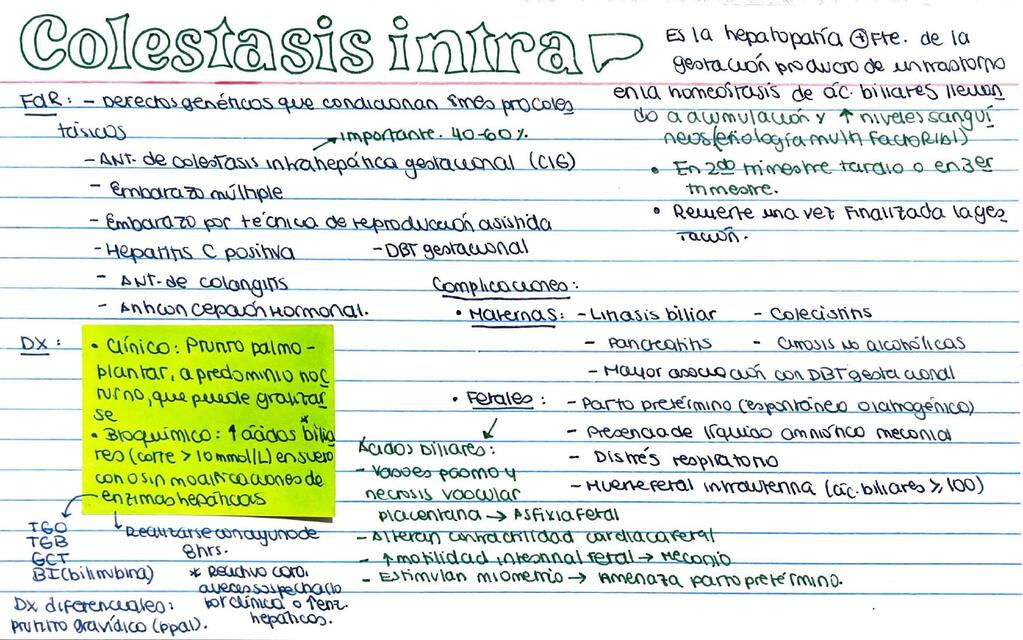 Colestasis intra
Es la hepatopatía ⊕Fte. de la
gestación producto de un trastorno
en la homeostasis de ác. biliares llevan
do a acumulación y ↑ niveles sanguí
neos (etiología multifactorial)
• En 2do trimestre tardio o en 3er
trimestre.
• Revierte una vez finalizada la ges
tación.
FdR: - Defectos genéticos que condicionan smes procoles
tásicos
→ importante. 40-60%.
- ANT. de colestasis intrahepática gestacional (CIG)
- Embarazo múltiple
- Embarazo por técnica de reproducción asistida
- Hepatitis C positiva - DBT gestacional
- ANT. de colangitis
- Anticoncepción Hormonal.
DX: • Clínico: Prurito palmo -
plantar, a predominio noc
turno, que puede gralizar
se
• Bioquímico: ↑ ácidos bilia
res (corte > 10 mmol/L) en suero
con o sin modificaciones de
enzimas hepáticas
TGO
TGB
GGT
BI (bilirrubina)
↳ Realizarse con ayuno de
8hrs.
* Reactivo caro.
a veces sospechado
por clínica o ↑enz.
hepáticas.
DX diferenciales:
prurito gravídico (ppal).
Complicaciones:
• Maternas: - Litiasis biliar - Colecistitis
- Pancreatitis - Cirrosis no alcohólicas
- Mayor asociación con DBT gestacional
• Fetales: - Parto pretérmino (espontáneo o iatrogénico)
- Presencia de líquido amniótico meconial
- Distrés respiratorio
- Muerte fetal intrauterina (ác. biliares ≥ 100)
Ácidos biliares:
- Vasoespasmo y
necrosis vascular
placentaria → Asfixia fetal
- Alteran contractilidad cardiaca fetal
- ↑ motilidad intestinal fetal → Meconio
- Estimulan miometrio → Amenaza parto pretérmino.